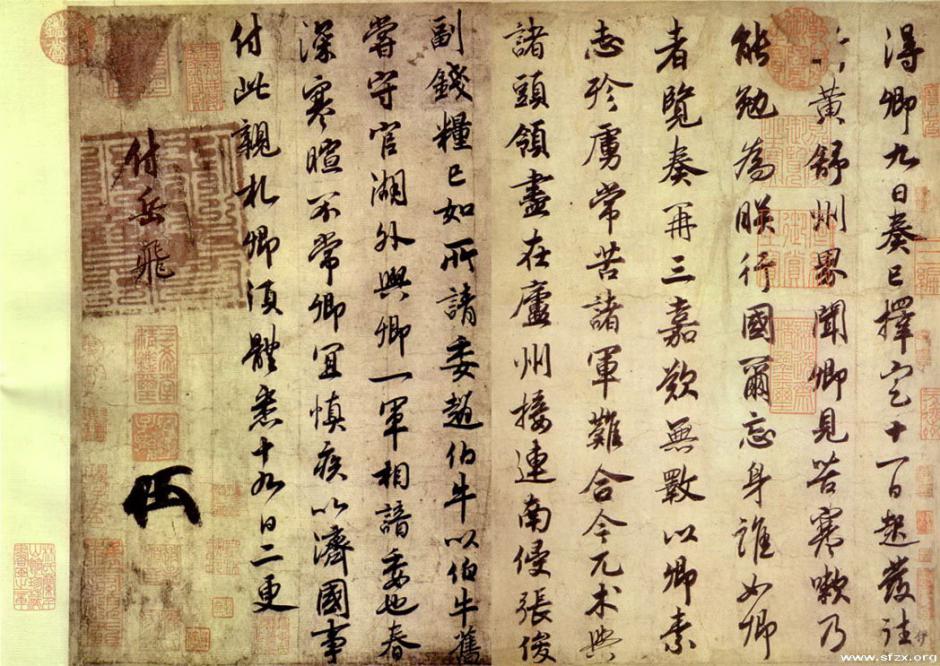 得卿九日奏已擇定十一日起發往
黃舒州界聞卿見苦寒嗽乃
能勉為朕行國爾忘身誰如卿
者覽奏再三嘉歎無斁以卿素
志殄虜常苦諸軍難合今兀朮與
諸頭領盡在廬州接連南侵張俊
副錢糧已如所請委趙伯牛以伯牛舊
嘗守官湖外與卿一軍相諳委也春
深寒暄不常卿宜慎疾以濟國事
付此親札卿須體悉十九日二更
付岳飛
www.sfzx.org